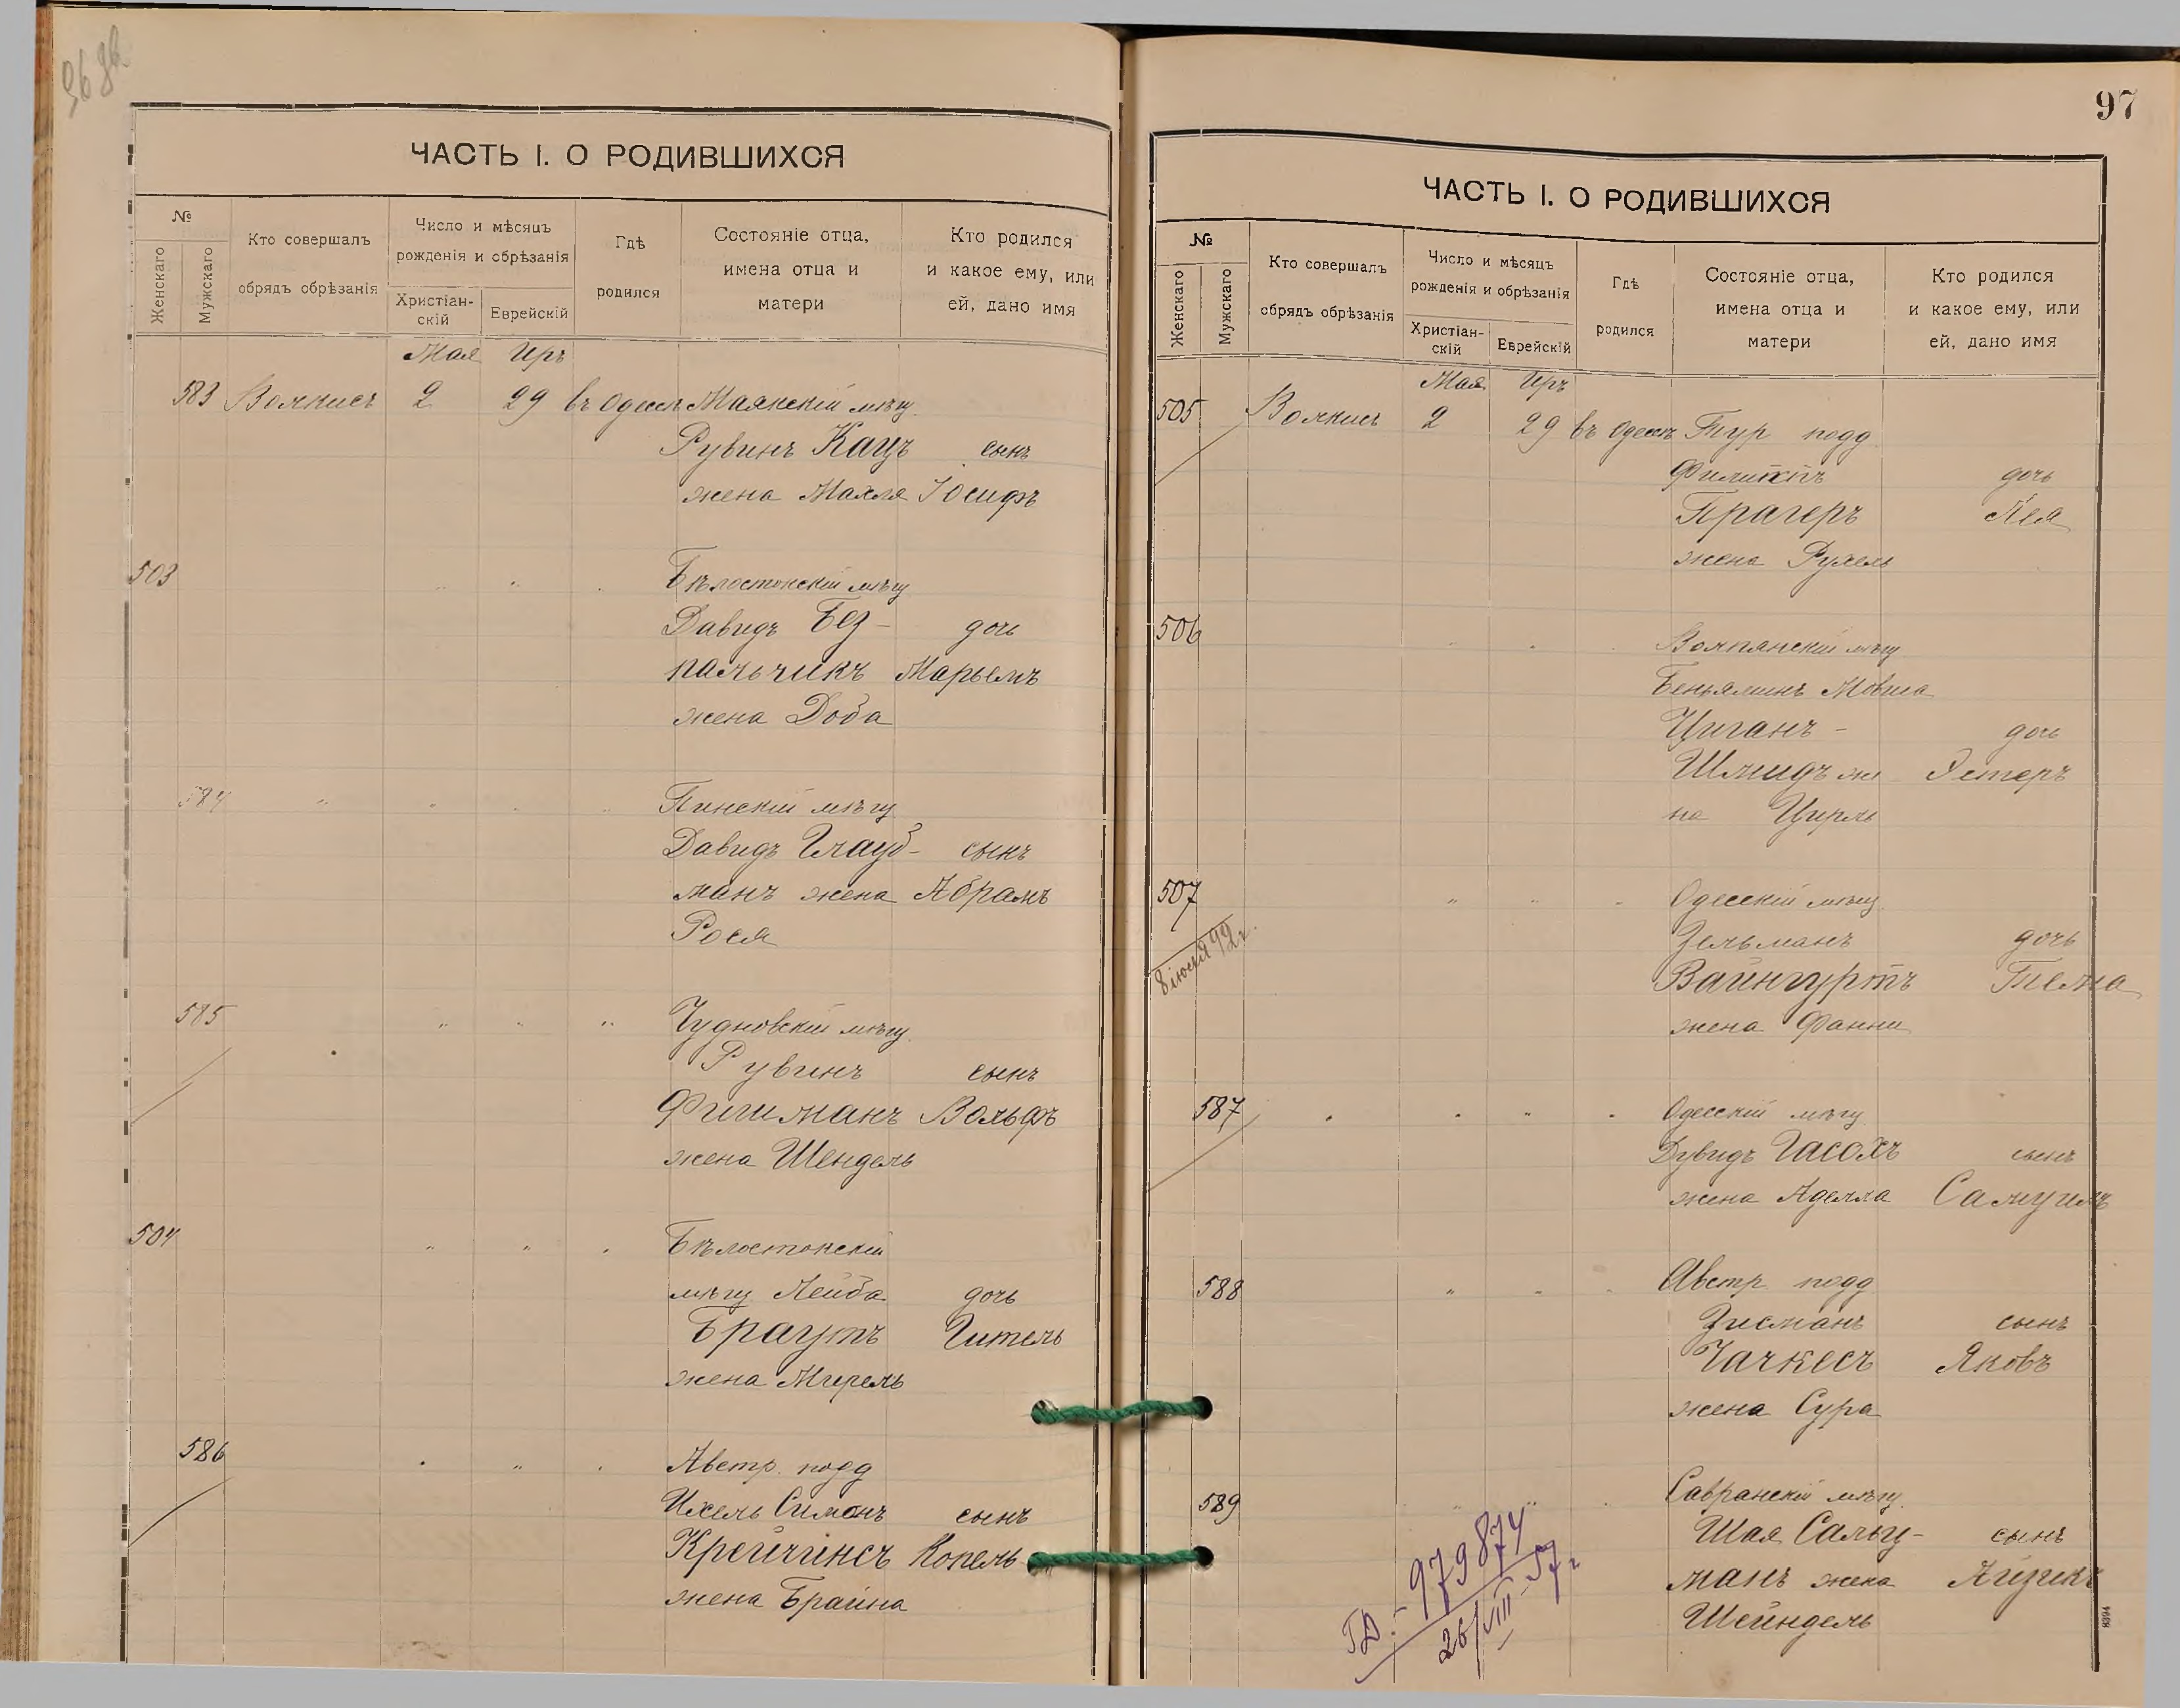 96 об.
ЧАСТЬ I. О РОДИВШИХСЯ
№
Женскаго
Мужскаго
Кто совершалъ
обрядъ обрѣзанія
Число и мѣсяцъ
рожденія и обрѣзанія
Христіан-
скій
Еврейскій
Гдѣ
родился
Состояніе отца,
имена отца и
матери
Кто родился
и какое ему, или
ей, дано имя
Мая Иръ
583 2 29 въ Одессѣ Маякскій мѣщ.
Рувинъ Кацъ сынъ
жена Махля Іосифъ
503 Бѣлостокскій мѣщ
Давидъ Без- дочь
пальчикъ Марьемъ
жена Доба
584 " " " " Пинскій мѣщ
Давидъ Глауз- сынъ
манъ жена Абрамъ
Рося
585 " " " Чудновскій мѣщ.
Рувинъ сынъ
Фишманъ Вольфъ
жена Шендель
504 " " " Бѣлостокскій
мѣщ Лейба дочь
Браутъ Гитель
жена Мирель
586 " " " Австр. подд
Ихель Симонъ сынъ
Копель
жена Брайна
97
ЧАСТЬ I. О РОДИВШИХСЯ
№
Женскаго
Мужскаго
Кто совершалъ
обрядъ обрѣзанія
Число и мѣсяцъ
рожденія и обрѣзанія
Христіан-
скій
Еврейскій
Гдѣ
родился
Состояніе отца,
имена отца и
матери
Кто родился
и какое ему, или
ей, дано имя
Мая Иръ
505 2 29 въ Одессѣ Тур подд
Филиппъ дочь
Прагеръ Лея
жена Рухель
506 " " " мѣщ
Беньяминъ Мовша
Циганъ - дочь
Шмидъ же Эстеръ
на Цирль
507 " " " Одесскій мѣщ.
8 іюня 92 г.
Зельманъ дочь
Вайнгуртъ
жена Фанни
587 " " " " Одесскій мѣщ
Дувидъ Гасохъ сынъ
жена Аделла Самуилъ
588 " " " Австр подд
Зисманъ сынъ
Чачкесъ Яковъ
жена Сура
589 " " " Савранскій мѣщ.
Шая Сальц- сынъ
манъ жена Айзикъ
Шейндель
979874
26/VIII-57 г
8394